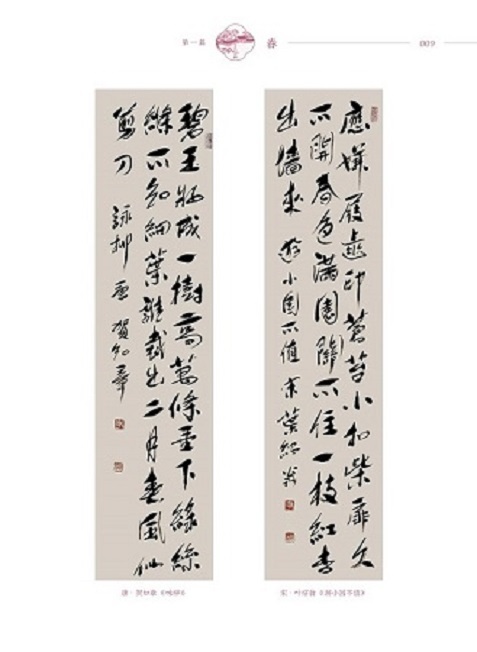 第一篇 春 009
應嫌屐齒印蒼苔小扣柴扉久
不開春色滿園關不住一枝紅杏
出牆來 遊小園不值 宋 葉紹翁
碧玉妝成一樹高萬條垂下綠絲
絛不知細葉誰裁出二月春風似
剪刀 詠柳 唐 賀知章
唐·贺知章《咏柳》
宋·叶绍翁《游小园不值》